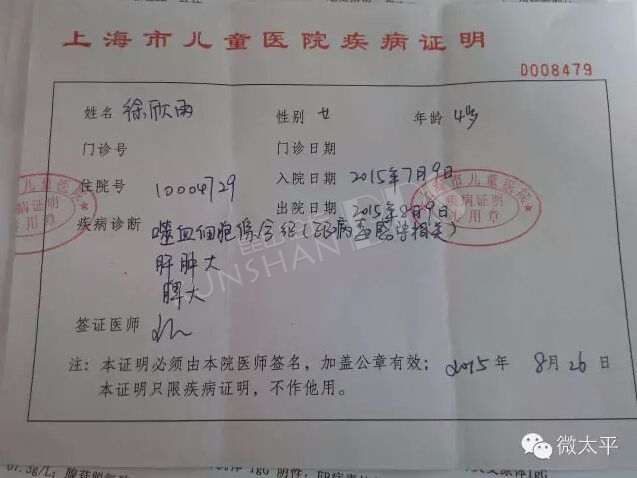 上海市儿童医院疾病证明
D008479
姓名 徐欣雨 性别 女 年龄 4岁
门诊号 门诊日期
住院号 10004729 入院日期 2015年7月9日
出院日期 2015年8月9日
疾病诊断 噬血细胞综合征(EB病毒感染相关)
肝肿大
脾大
签证医师
注：本证明必须由本院医师签名，加盖公章有效； 2015年 8月26日
本证明只限疾病证明，不作他用。
上海市儿童医院
疾病证明
专用章
儿童医院
病证明
用章
UNSHAN
微太平